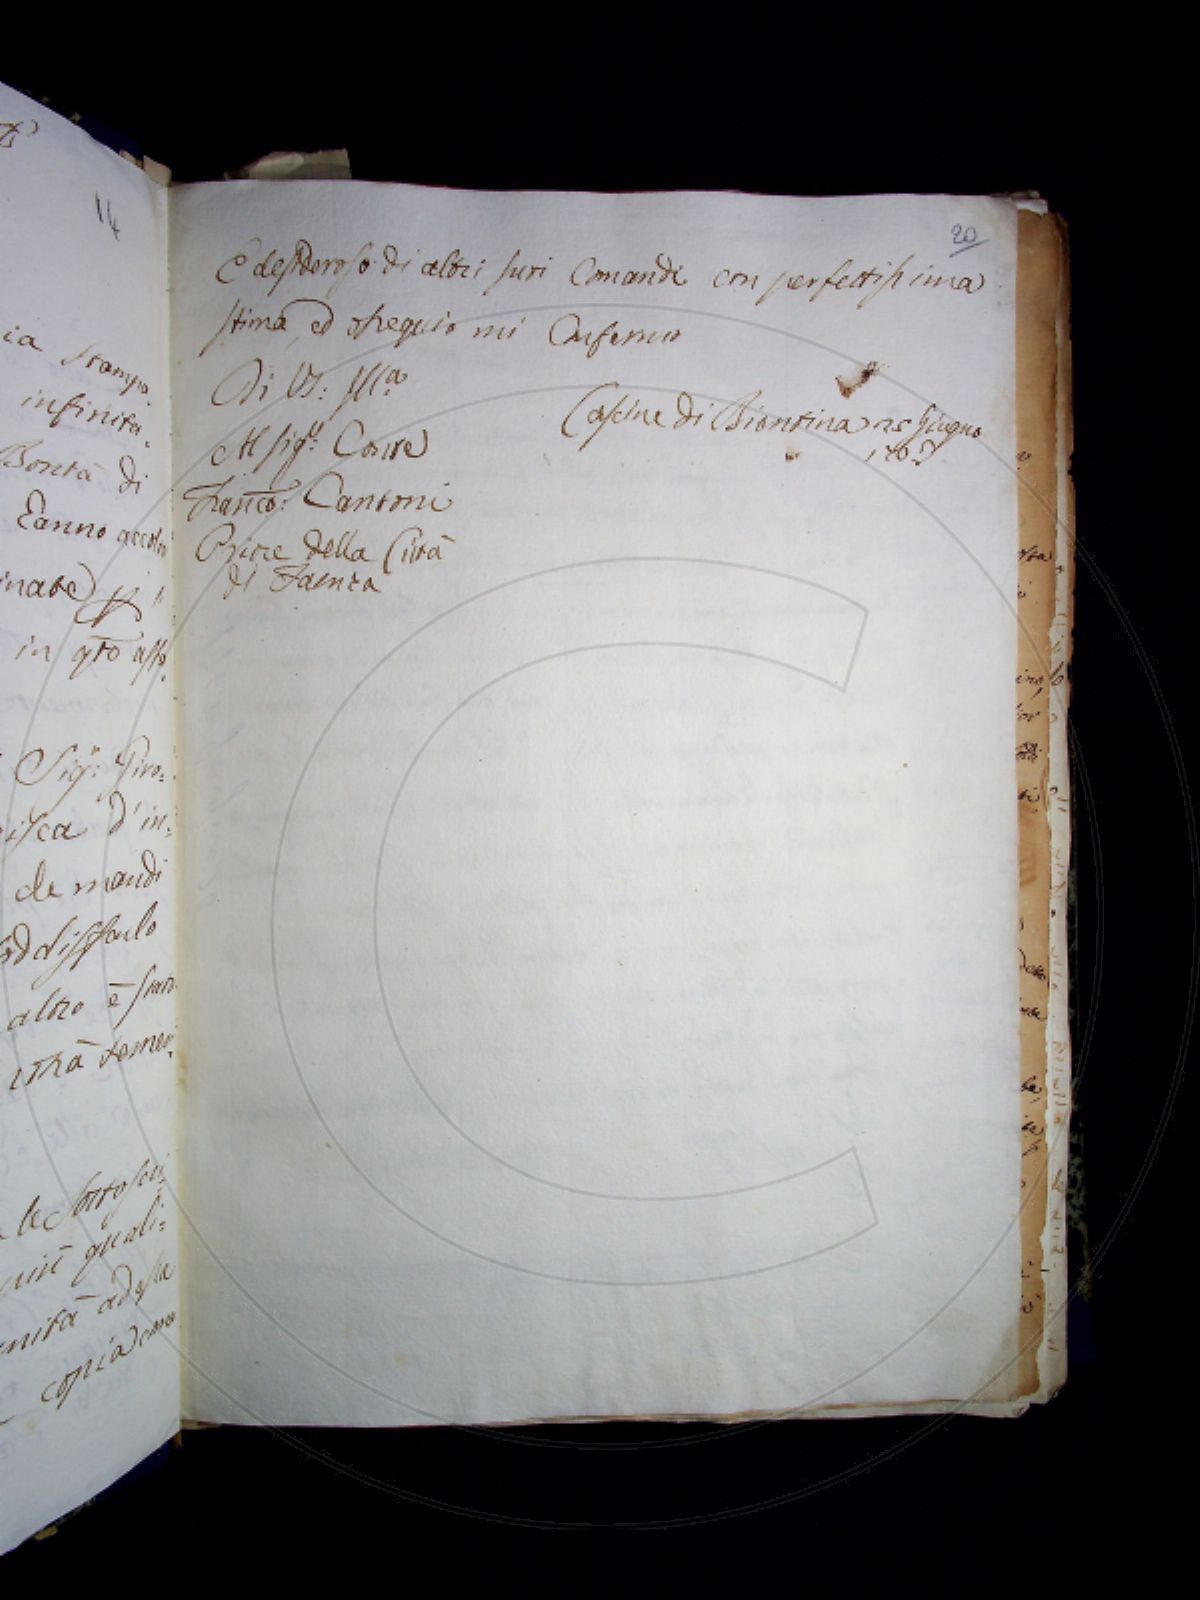 14
ia stampa
infinita-
Bontà di
Eanno accolto
inate)
in qto affo.
Sigr: Giro:
isca d'in:
de mandi
altro è stato
città temer:
le sottoscri:
più quali:
nità adessa
copia come
20
E desideroso di altri suoi Comandi con perfettissima
stima, ed ossequio mi Confermo
Di VS: Illa
Cascine di Bientina 25 Giugno
1703
Al sigr: Conte
Franco: Cantoni
Priore della Città
di Faenza